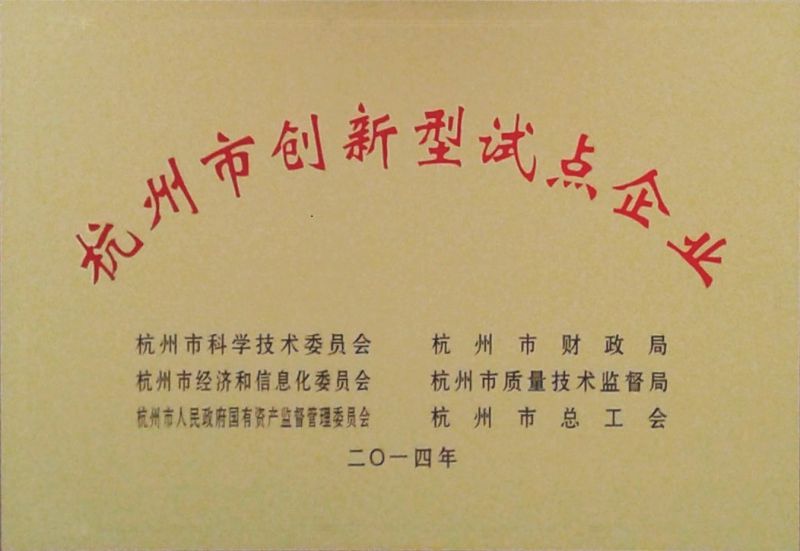 杭州市创新型试点企业
杭州市科学技术委员会 杭州市财政局
杭州市经济和信息化委员会 杭州市质量技术监督局
杭州市人民政府国有资产监督管理委员会 杭州市总工会
二〇一四年